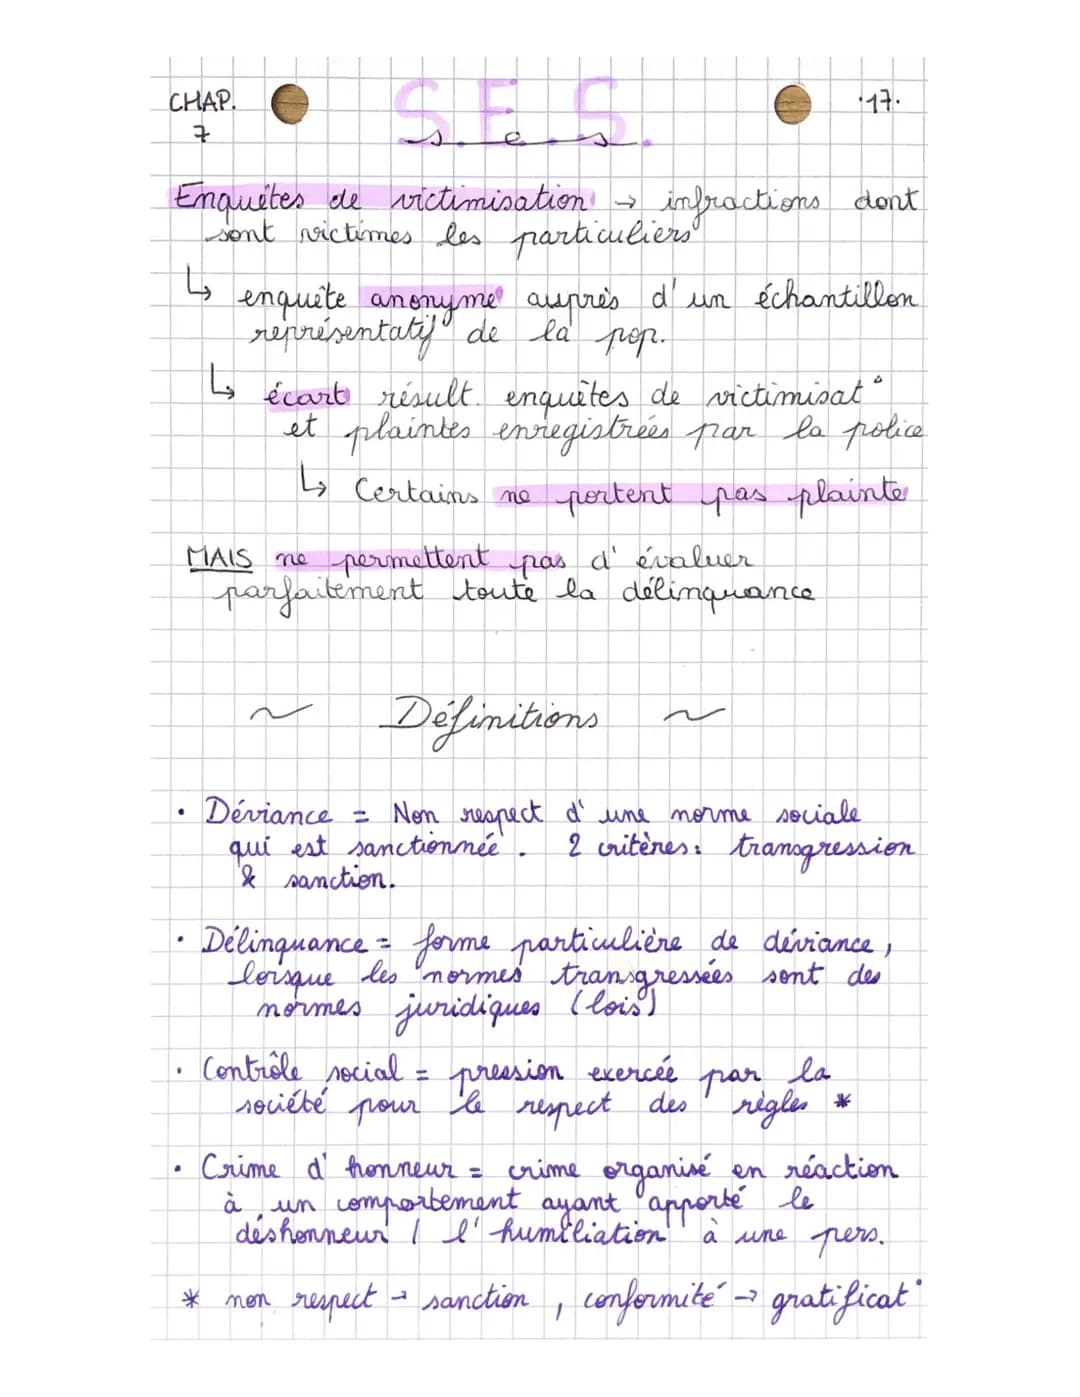 CHAP.
7
S.E.S.
s.e.s
.17.
Enquêtes de victimisation → infractions dont
sont victimes les particuliers
↳ enquête anonyme auprès d'un échantillon
représentatif de la pop.
↳ écart résult. enquêtes de victimisat°
et plaintes enregistrées par la police
↳ Certains ne portent pas plainte
MAIS ne permettent pas d'évaluer
parfaitement toute la délinquance
~ Définitions ~
• Déviance = Non respect d'une norme sociale
qui est sanctionnée. 2 critères: transgression
& sanction.
• Délinquance = forme particulière de déviance,
lorsque les normes transgressées sont des
normes juridiques (lois)
• Contrôle social = pression exercée par la
société pour le respect des règles *
• Crime d'honneur = crime organisé en réaction
à un comportement ayant apporté le
déshonneur / l'humiliation à une pers.
* non respect → sanction, conformité → gratificat°